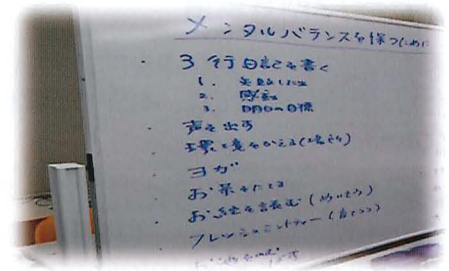 メンタルバランスを保つために
・3行日記を書く
1. 失敗したこと
2. 感動
3. 明日の目標
・声を出す
・環境をかえる(場所)
・ヨガ
・お茶をたてる
・お経を読む(めいそう)
・フレッシュミントティー(